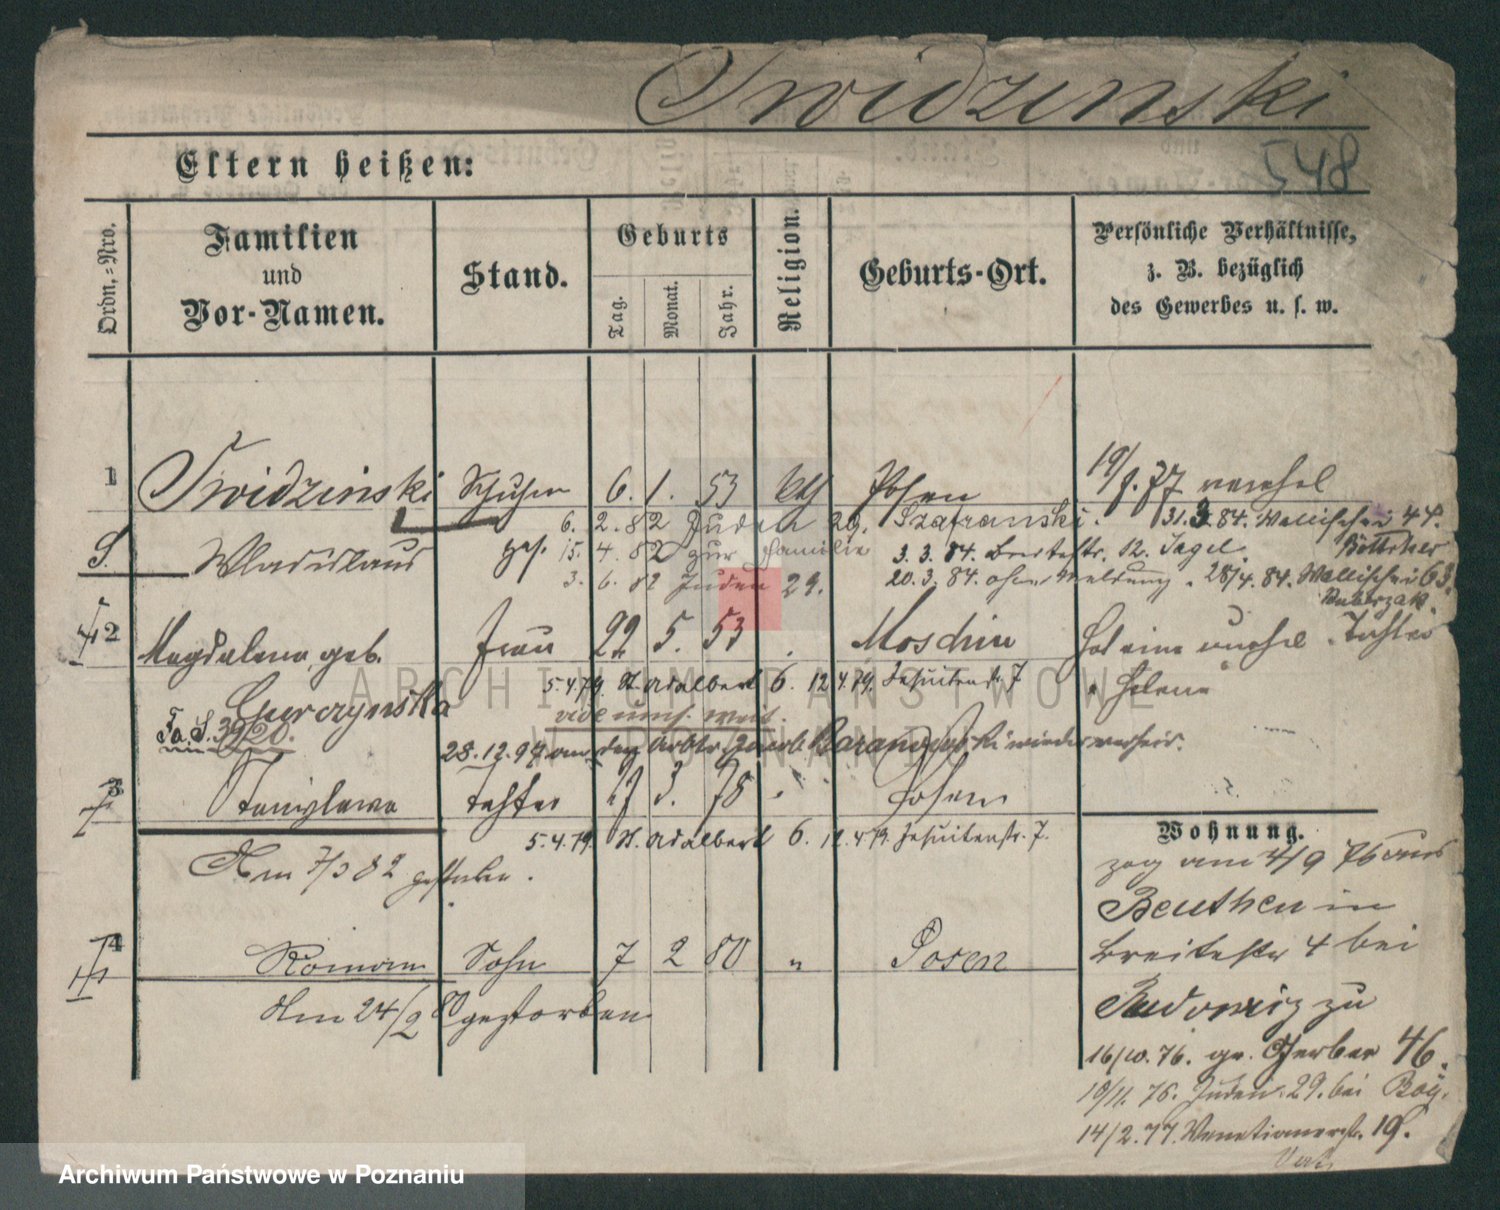 Twidzinski
Eltern heißen:
548
Ordn.-Nro.
Familien
und
Vor-Namen.
Stand.
Geburts
Tag.
Monat.
Jahr.
Religion.
Geburts-Ort.
Persönliche Verhältnisse,
z. B. bezüglich
des Gewerbes u. s. w.
1 Twidzinski 6. 1. 53 kth Posen 19/9. 77
6. 2. 82 Juden 29. Szafranski. 31.3.84. Wallischei 44.
Wladislaus 15. 4. 82 zur Familie 3. 3. 84. Breitestr. 12. Jagel. Böttcher
3. 6. 82 Juden 29. 20. 3. 84. ohne Meldung. 28/4. 84. Wallischei 63.
2 Magdalena geb. Frau 22 5. 53 Moschin Hat eine unehel. Tochter
5. 4. 79. St. Adalbert 6. 12.4.79. Jesuitenstr. 7 Helene
Gurczynska
28. 12. 94 an den Arbtr. Jacob wieder verheir.
3 Stanislawa Tochter 3. 78 Posen
5. 4. 79. St. Adalbert 6. 12. 4. 79. Jesuitenstr. 7.
Am 7/3 82 gestorben.
Wohnung.
zog am 4/9 76 aus
Beuthen in
4 Roman Sohn 7 2 80 " Posen
Breitestr 4 bei
Am 24/2 80 gestorben
zu
16/10. 76. gr. Gerber 46.
10/11. 76. Juden. 29. bei
14/2. 77. Venetianerstr. 19.
ARCHIWUM PAŃSTWOWE
W POZNANIU
Archiwum Państwowe w Poznaniu